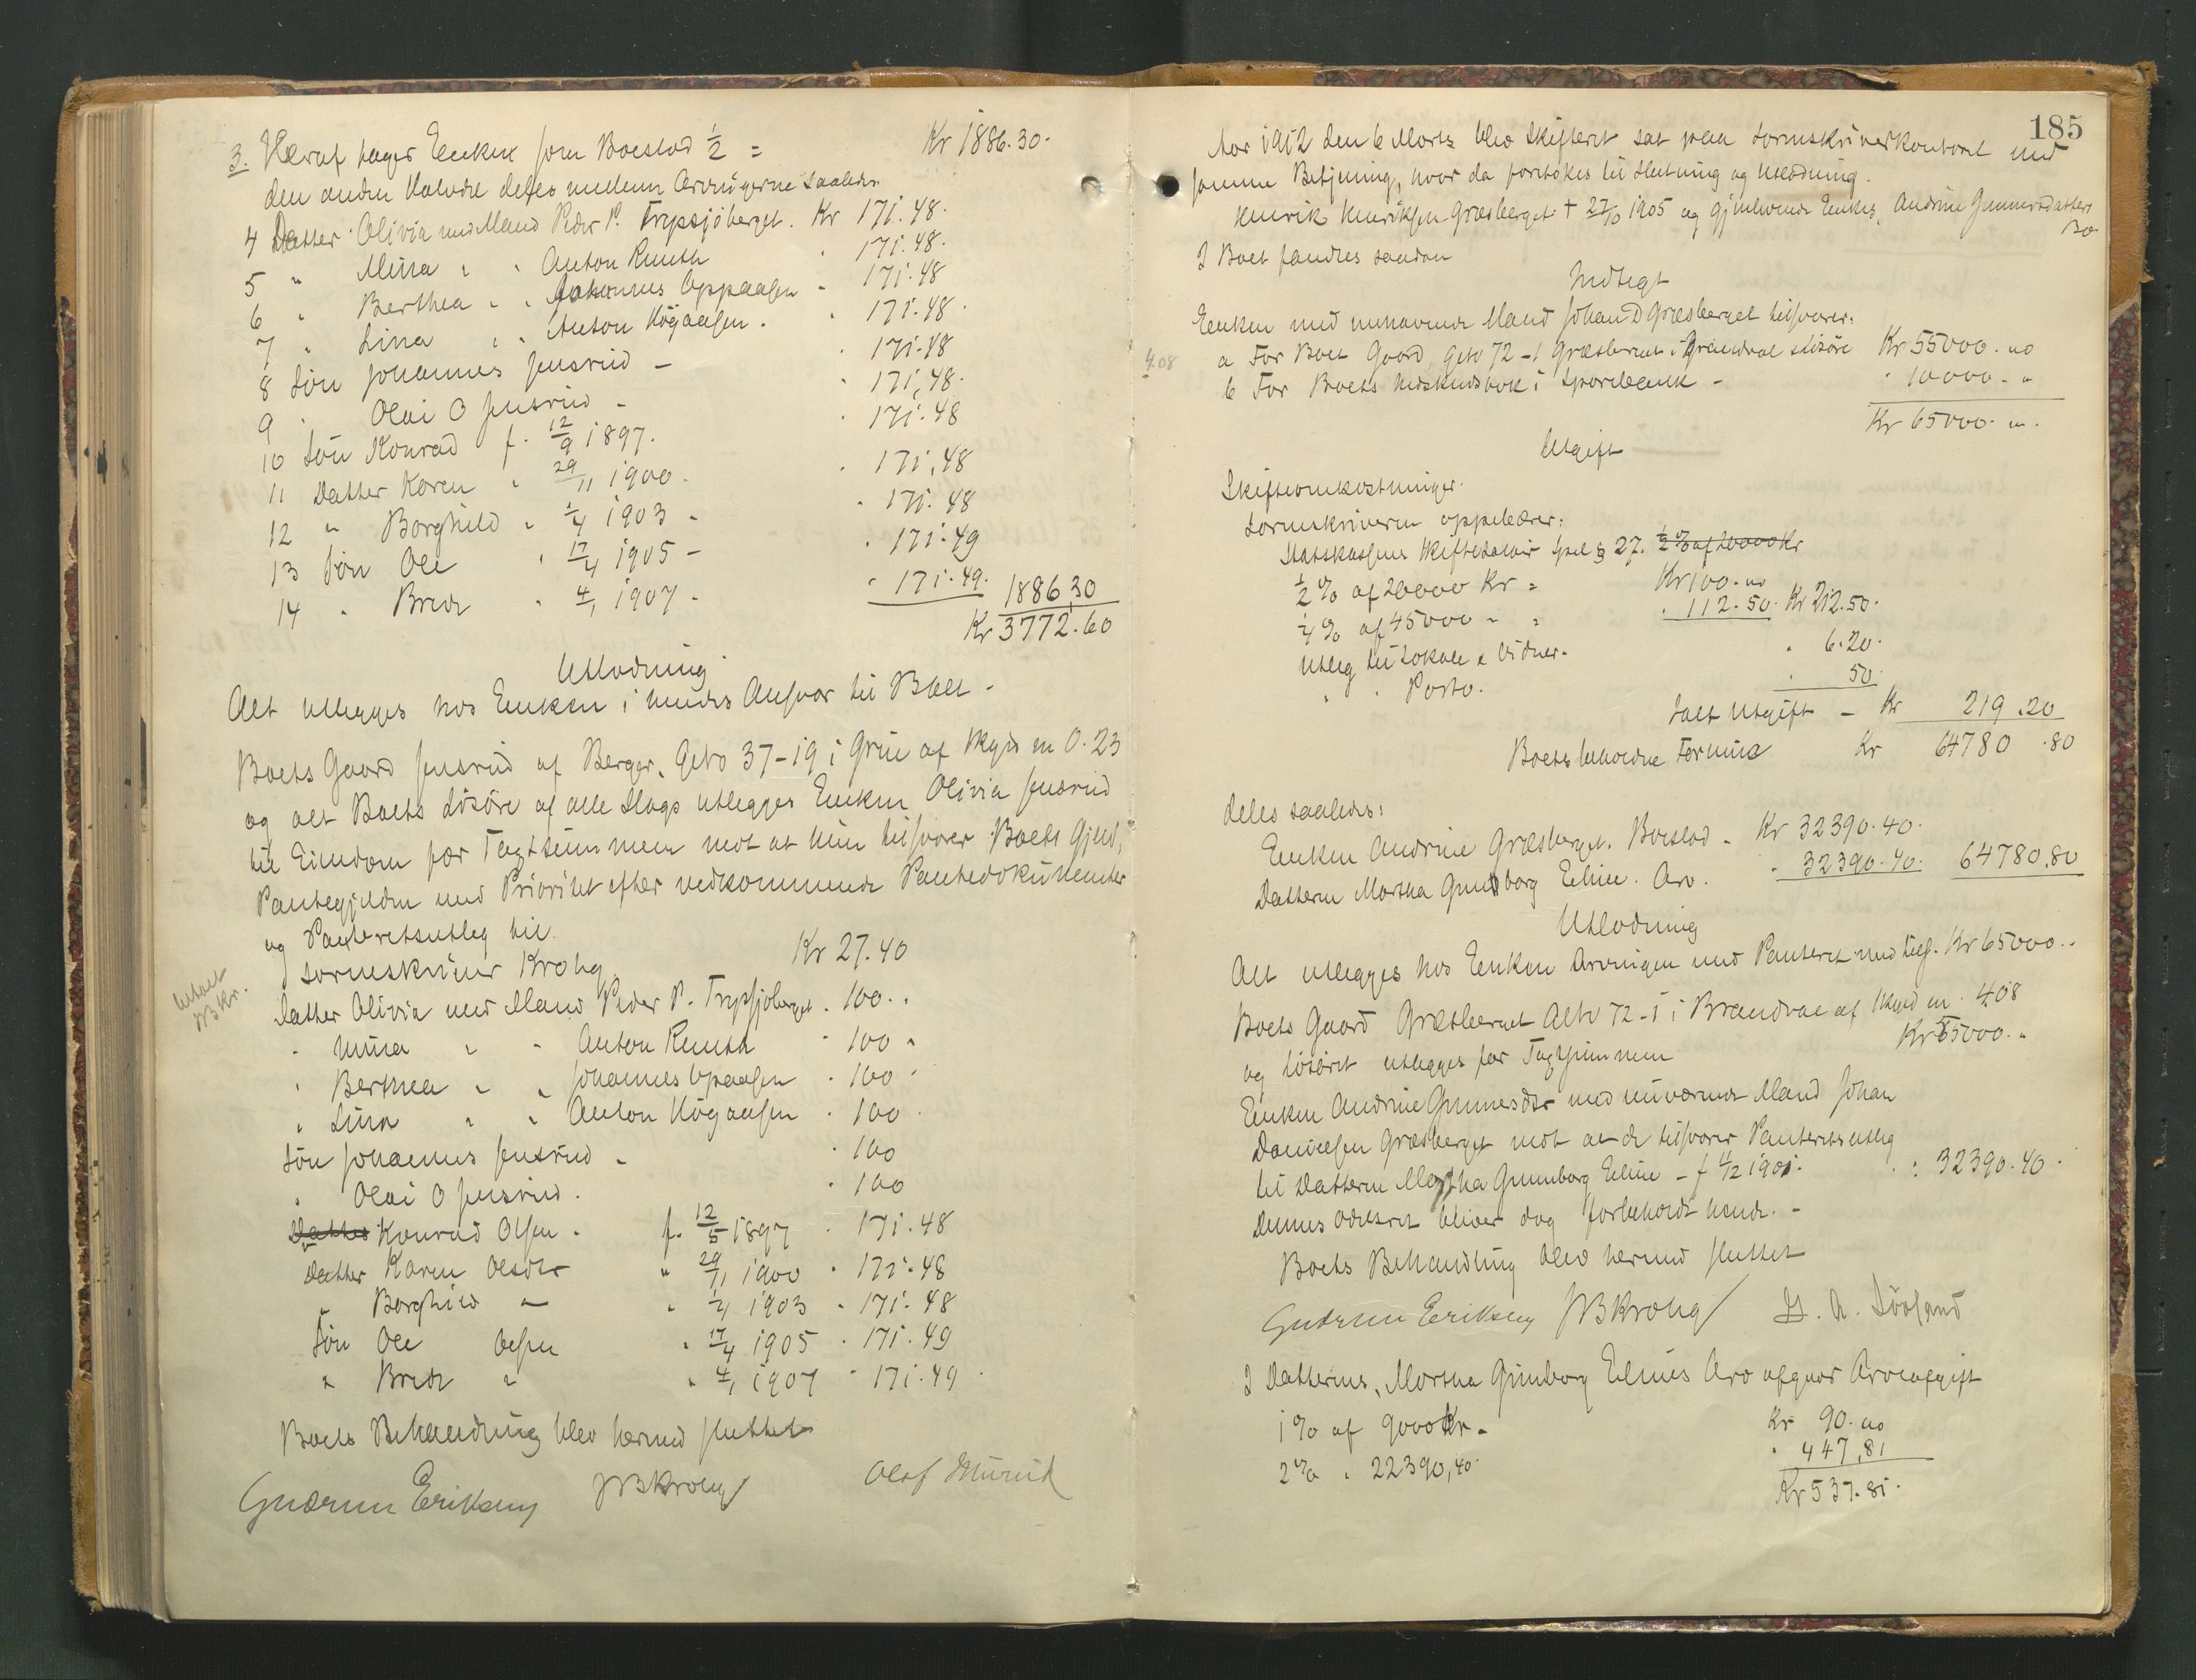 3. Heraf tager Enken som Boeslod 1/2 = Kr 1886.30.
den anden Halvdel deles mellem Arvingerne saaledes
4 Datter Olivia med Mand Peder P. Trypsjöberget. Kr 171.48.
5 " Mina " " Anton Ruuth " 171.48.
6 " Berthea " " Johannes Oppaasen - 171.48
7 " Lina " " Anton Högaasen. " 171.48.
8 Søn Johannes Jensrud - " 171.48
9 " Olai O Jensrud - " 171,48.
10 Søn Konrad f. 12/9 1897. " 171.48
11 Datter Karen " 29/11 1900. " 171,48
12 " Borghild " 1/4 1903 - " 171.48
13 Søn Ole " 17/4 1905 - " 171.49
14 " Brede " 4/1 1907 - " 171.49. 1886,30
Kr 3772.60
Utlodning
Alt utlegges hos Enken i hendes Ansvar til Boet -
Boets Gaard Jensrud af Berger, Gno 37-19 i Grue af Skyld m 0.23
og alt Boets Løsøre af alle Slags utlegges Enken Olivia Jensrud
til Eiendom for Taxtsummen mot at hun tilsvarer Boets Gjeld,
Pantegjelden med Prioritet efter vedkommende Pantedokumenter
og Panteretsutleg til
betalt
JBKr.
Sorenskriver Krohg Kr 27.40
Datter Olivia med Mand Peder P. Trypsjöberget . 100. "
" Mina " " Anton Ruuth " 100 "
" Berthea " " Johannes Opaasen " 100 "
" Lina " " Anton Högaasen " 100
Søn Johannes Jensrud - " 100
" Olai O Jensrud. " 100
Datter Konrad Olsen . f. 12/5 1897 " 171.48
Datter Karen Olsdtr " 29/11 1900 " 171.48
" Borghild " " 1/4 1903 " 171.48
Søn Ole Olsen " 17/4 1905 " 171.49
" Brede " " 4/1 1907 " 171.49
Boets Behandling blev hermed sluttet
Gudrun Eriksen JBKrohg Olaf
185
Aar 1912 den 6 Marts blev Skifteret sat paa Sorenskriverkontoret med
samme Betjening, hvor da foretokes til Slutning og Utlodning.
Henrik Henriksen Græsberget † 27/10 1905 og gjenlevende Enkes, Andrine Gunnersdatters
Bo
I Boet fandtes saadan
Indtegt
Enken med nuhavende Mand Johan D Græsberget tilsvarer:
4.08
a For Boet Gaard Gno 72-1 Græsberget i Brandval & Løsøre Kr 55000. oo
b For Boets Indskudsbok i Sparebank - " 10000 - "
Kr 65000. oo.
Utgift
Skifteomkostninger.
Sorenskriveren oppebærer:
Statskassens Skiftesalair Spl § 27. 1/2 % af 20000 Kr
1/2 % af 20000 Kr = Kr 100. oo
1/4 % af 45000 - = " 112.50. Kr 212.50.
Utleg til Lokale & Vidner. " 6.20.
" " Porto. " 50.
Ialt Utgift - Kr 219.20
Boets beholdne Formue Kr 64780.80
deles saaledes:
Enken Andrine Græsberget. Boeslod - Kr 32390.40.
Datteren Martha Gunborg Eline. Arv. " 32390.40. 64780.80
Utlodning
Alt utlegges hos Enken Arvingen med Panteret med tils. Kr 65000..
Boets Gaard Græsberget Gno 72-1 i Brandval af Skyld m. 4.08
og Løsøret utlegges for Taxtsummen Kr 55000. "
Enken Andrine Gunnersdtr med nuværende Mand Johan
Danielsen Græsberget mot at de tilsvarer Panteretsutleg
til Datteren Martha Gunnborg Eline - f 4/12 1901. " : 32390.40.
Dennes Odelsret bliver dog forbeholdt hende. -
Boets Behandling blev hermed sluttet
Gudrun Eriksen JBKrohg
I Datterens, Martha Gunborg Elines Arv afgaar Arveafgift
1 % af 9000 Kr - Kr 90. oo
2 % " 22390,40. " 447,81
Kr 537.81.